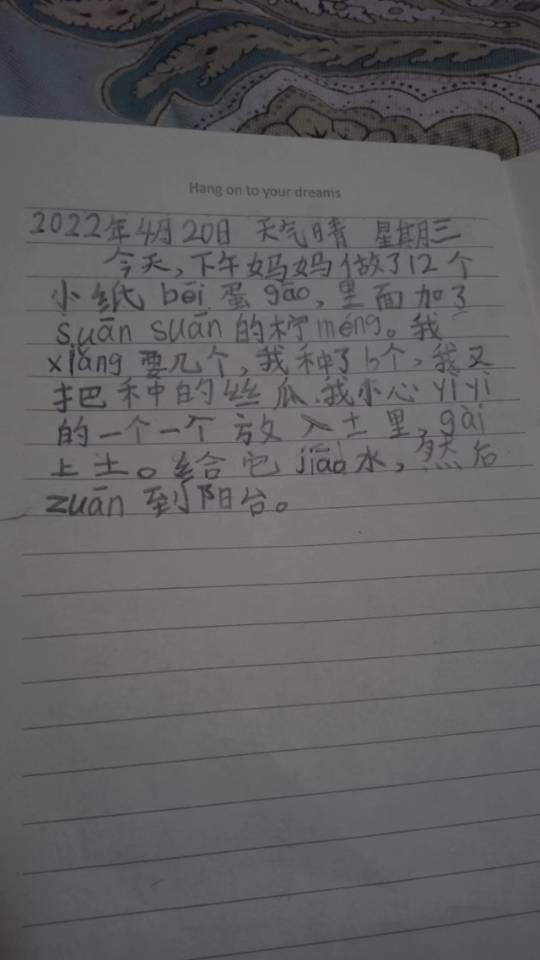 Hang on to your dreams
2022年4月20日 天气晴 星期三
今天,下午妈妈做了12个
小纸bēi蛋gāo,里面加了
suān suān的柠méng。我
xiǎng要几个,我种了6个,我又
把种的丝瓜.我小心yì yì
的一个一个放入土里,gài
上土。给它jiāo水,然后
zuān到阳台。